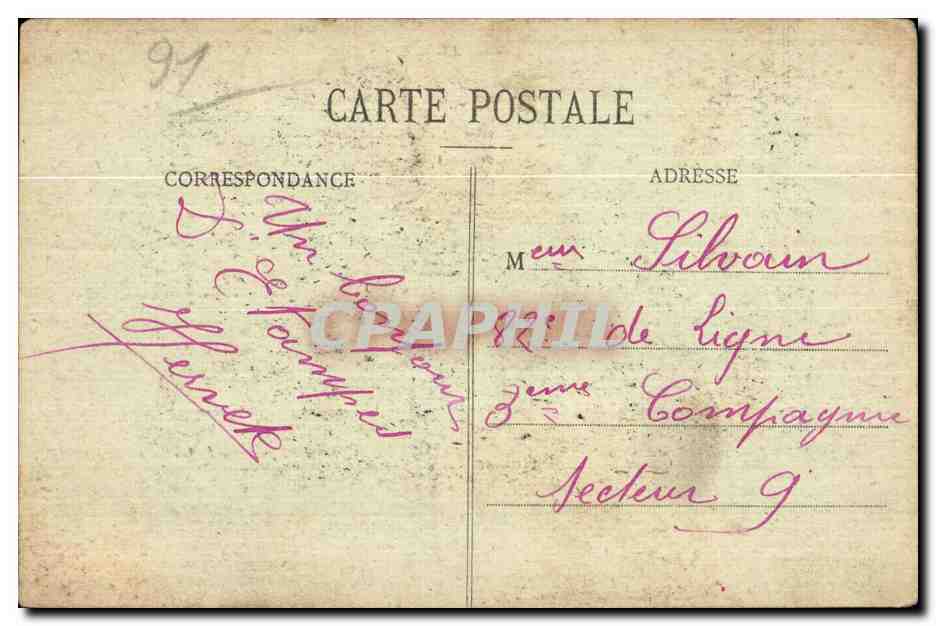 91
CARTE POSTALE
CORRESPONDANCE
Un bonjour
D'Etampes
ADRESSE
Meur Silvain
82e de Ligne
3eme Compagnie
Secteur 9
CPAPHIL